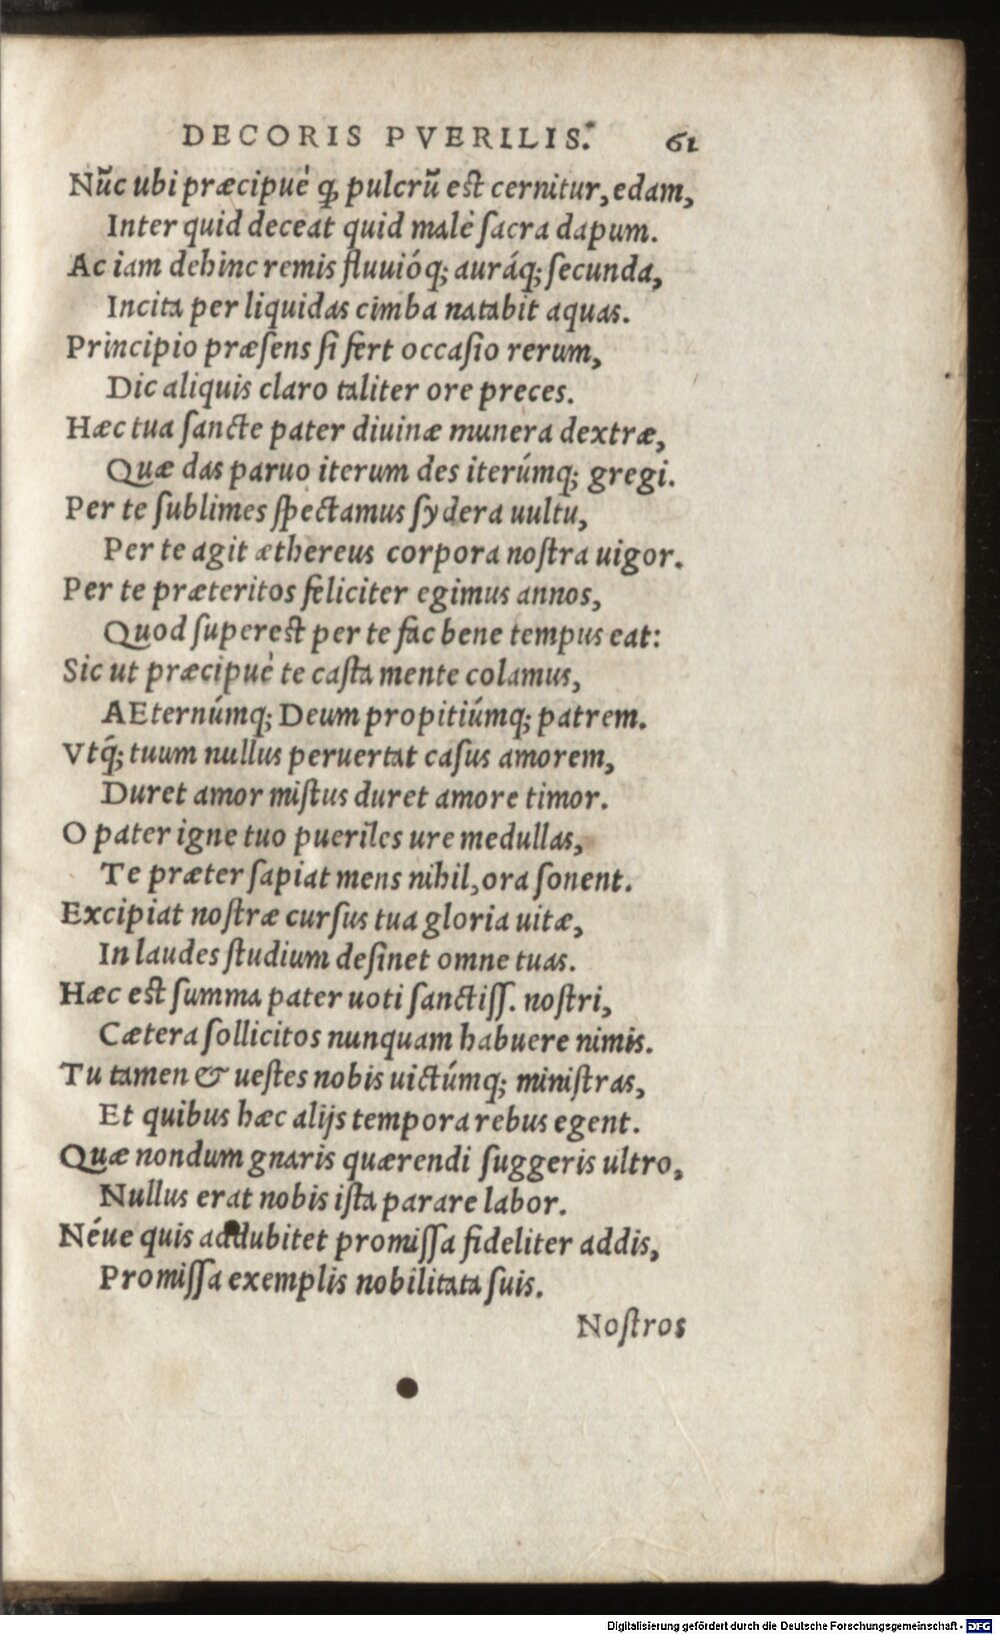 DECORIS PVERILIS. 61
Nũc ubi præcipuè ꝙ pulcrũ est cernitur, edam,
Inter quid deceat quid malè ſacra dapum.
Ac iam dehinc remis fluuióq; auráq; ſecunda,
Incita per liquidas cimba natabit aquas.
Principio præſens ſi fert occaſio rerum,
Dic aliquis claro taliter ore preces.
Hæc tua ſancte pater diuinæ munera dextræ,
Quæ das paruo iterum des iterúmq; gregi.
Per te ſublimes ſpectamus ſydera uultu,
Per te agit æthereus corpora noſtra uigor.
Per te præteritos feliciter egimus annos,
Quod ſupereſt per te fac bene tempus eat:
Sic ut præcipuè te caſta mente colamus,
AEternúmq; Deum propitiúmq; patrem.
Vtq́; tuum nullus peruertat caſus amorem,
Duret amor miſtus duret amore timor.
O pater igne tuo pueriles ure medullas,
Te præter ſapiat mens nihil, ora ſonent.
Excipiat noſtræ curſus tua gloria uitæ,
In laudes ſtudium deſinet omne tuas.
Hæc eſt ſumma pater uoti ſanctiſſ. noſtri,
Cætera ſollicitos nunquam habuere nimis.
Tu tamen & ueſtes nobis uictúmq; miniſtras,
Et quibus hæc alijs tempora rebus egent.
Quæ nondum gnaris quærendi ſuggeris ultro,
Nullus erat nobis iſta parare labor.
Néue quis addubitet promiſſa fideliter addis,
Promiſſa exemplis nobilitata ſuis.
Noſtros
Digitalisierung gefördert durch die Deutsche Forschungsgemeinschaft - DFG